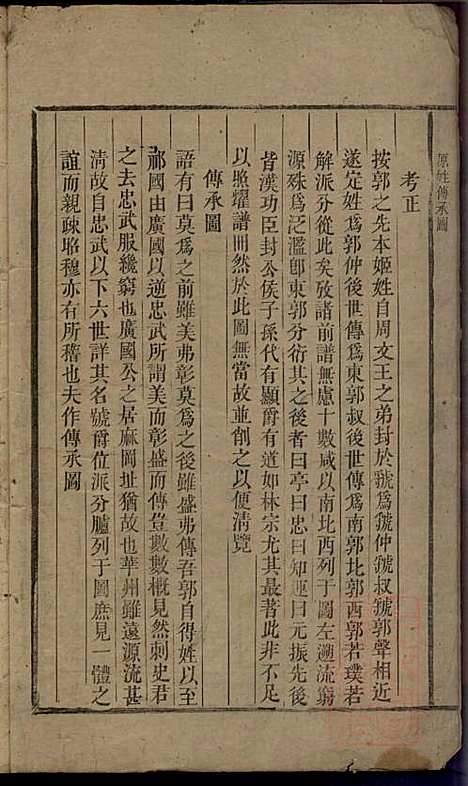 原姓傳承圖
考正
按郭之先本姬姓自周文王之弟封於虢爲虢仲虢叔虢郭聲相近
遂定姓爲郭仲後世傳爲東郭叔後世傳爲南郭北郭西郭若璞若
解派分從此矣攷諸前譜無慮十數咸以南北西列于圖左遡流窮
源殊爲泛濫卽東郭分衍其之後者曰亭曰忠曰知運曰元振先後
皆漢功臣封公侯子孫代有顯爵有道如林宗尤其最著此非不足
以煕耀譜冊然於此圖無當故並創之以便清覽
傳承圖
語有曰莫爲之前雖美弗彰莫爲之後雖盛弗傳吾郭自得姓以至
祁國由廣國以逆忠武所謂美而彰盛而傳豈數數槪見然刺史君
之去忠武服纔窮也廣國公之居麻岡址猶故也華州雖遠源流甚
清故自忠武以下六世詳其名號爵位派分臚列于圖庶見一體之
誼而親疎昭穆亦有所稽也夫作傳承圖